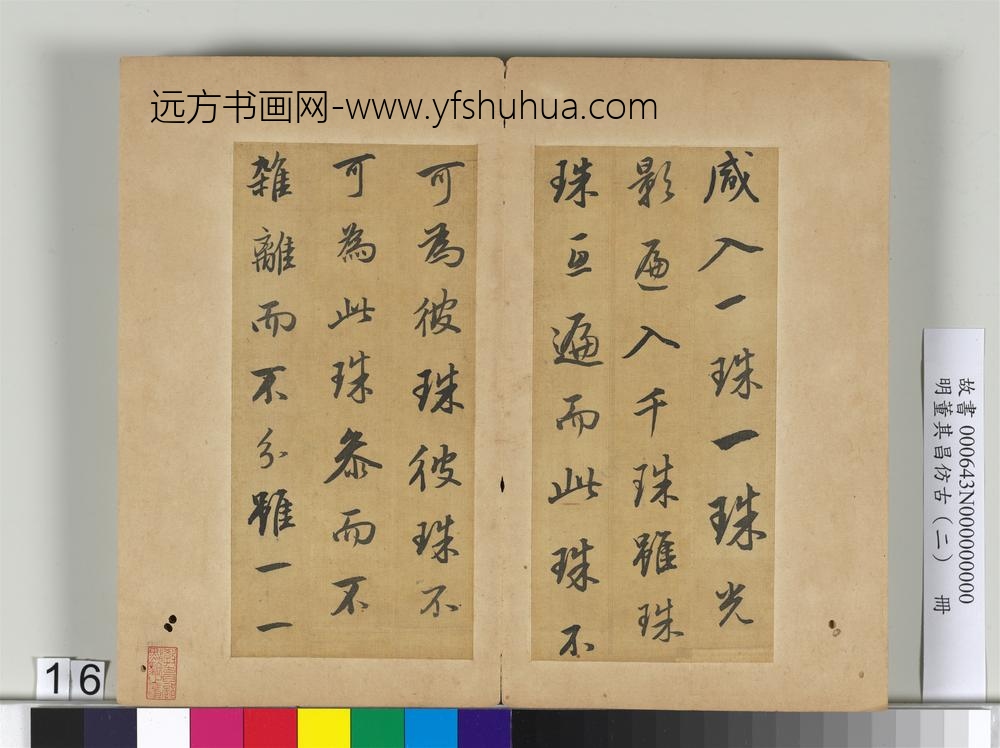 远方书画网-www.yfshuhua.com
咸入一珠一珠光
影遍入千珠雖珠
珠互遍而此珠不
可為彼珠彼珠不
可為此珠參而不
雜離而不分雖一一
故書 000643N000000000
明董其昌仿古(二) 冊
16